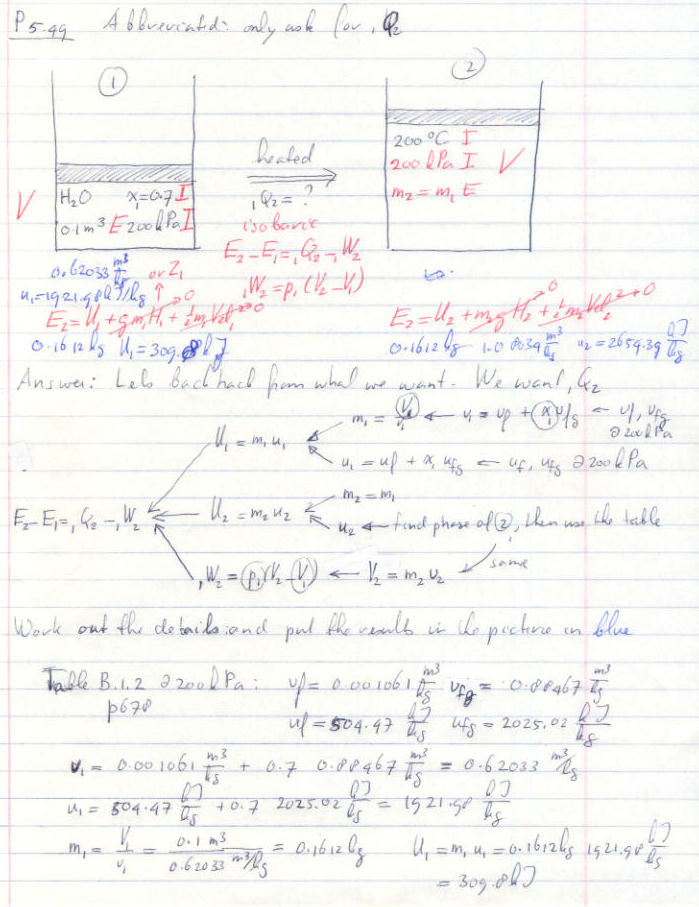 P 5.49 Abbreviated: only ask for ₁Q₂
① ②
heated
₁Q₂ = ?
isobaric
E₂ - E₁ = ₁Q₂ - ₁W₂
₁W₂ = p₁ (V₂ - V₁)
V
H₂O x₁=0.7 I
0.1 m³ E 200 kPa I
200 °C I
200 kPa I V
m₂ = m₁ E
0.62033 m³/kg or Z₁
u₁=1921.98 kJ/kg
E₂ = U₁ + g m₁ H₁ + ½ m₁ Vel₁² → 0
0.1612 kg U₁ = 309.8 kJ
E₂ = U₂ + m₂ g H₂ + ½ m₂ Vel₂² → 0
0.1612 kg 1.08034 m³/kg u₂ = 2654.39 kJ/kg
Answer: Lets back track from what we want. We want ₁Q₂
m₁ = V₁/v₁ ← v₁ = vf + x₁ vfg ← vf, vfg @ 200 kPa
U₁ = m₁ u₁
u₁ = uf + x₁ ufg ← uf, ufg @ 200 kPa
m₂ = m₁
E₂ - E₁ = ₁Q₂ - ₁W₂ ← U₂ = m₂ u₂
u₂ ← find phase of ②, then use the table
same
₁W₂ = p₁ (V₂ - V₁) ← V₂ = m₂ v₂
Work out the details and put the results in the picture in blue
Table B.1.2 @ 200 kPa: vf = 0.001061 m³/kg vfg = 0.88467 m³/kg
p678
uf = 504.47 kJ/kg ufg = 2025.02 kJ/kg
v₁ = 0.001061 m³/kg + 0.7 0.88467 m³/kg = 0.62033 m³/kg
u₁ = 504.47 kJ/kg + 0.7 2025.02 kJ/kg = 1921.98 kJ/kg
m₁ = V₁/v₁ = 0.1 m³ / 0.62033 m³/kg = 0.1612 kg U₁ = m₁ u₁ = 0.1612 kg 1921.98 kJ/kg
= 309.8 kJ